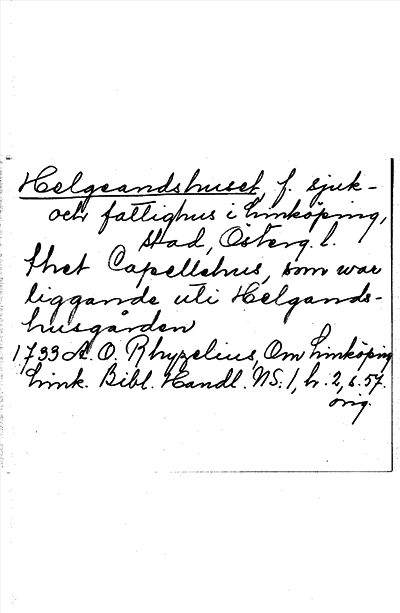 Helgeandshuset, f. sjuk-
och fattighus i Linköping,
stad, Österg. l.
thet Capellehus, som war
liggande uti Helgands-
husgården
1733 A. O. Rhyzelius, Om Linköping
Link. Bibl. Handl. NS. 1, h. 2, s. 57.
orig.